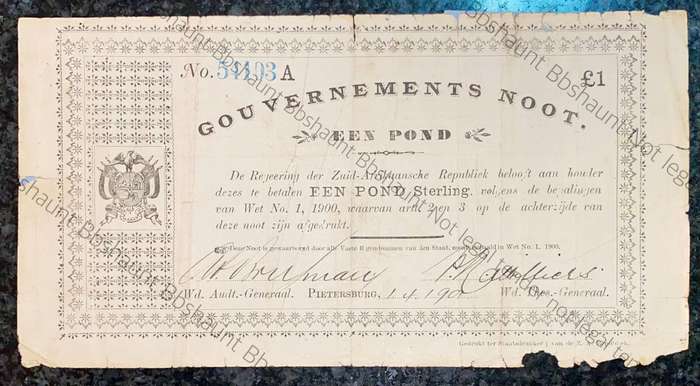 No. 54193 A £1
GOUVERNEMENTS NOOT.
EEN POND
De Regeering der Zuid-Afrikaansche Republiek belooft aan houder
dezes te betalen EEN POND Sterling, volgens de bepalingen
van Wet No. 1, 1900, waarvan artt. 2 en 3 op de achterzijde van
deze noot zijn afgedrukt.
Deze Noot is gewaarborgd door alle Vaste Eigendommen van den Staat, in Wet No. 1, 1900.
Wd. Audt.-Generaal. PIETERSBURG, 1.4.190 Wd. Thes.-Generaal.
Gedrukt ter Staatsdrukkerij van de Z.
Bbshaunt Not legal tender